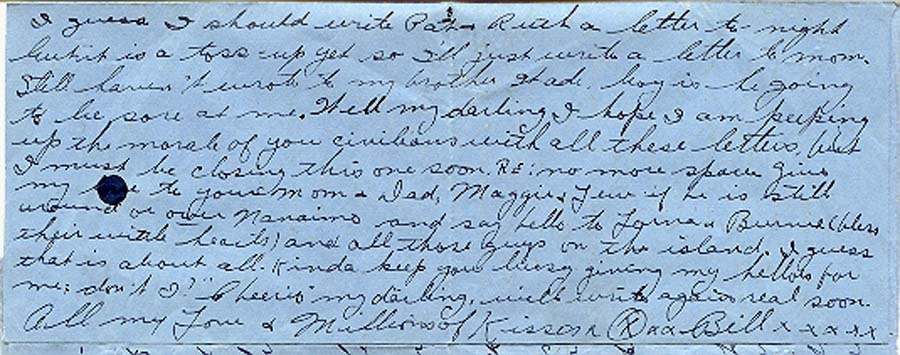 I guess I should write Pat & Ruth a letter to night
but it is a toss-up yet so I'll just write a letter to mom.
Still haven't wrote to my brother Stad. boy is he going
to be sore at me. Well my darling I hope I am peeping
up the morale of you civilians with all these letters, but
I must be closing this one soon. RE: no more space Give
my to your Mom & Dad, Maggie & Lew if he is still
around or over Nanaimo and say hello to Lorna & Bernie (bless
their little hearts) and all those guys on the island. I guess
that is about all. Kinda keep you busy giving my hellos for
me; don't I? Cheerio my darling, will write again real soon.
All my Love & Millions of Kisses x (x) xx Bill x x x x x